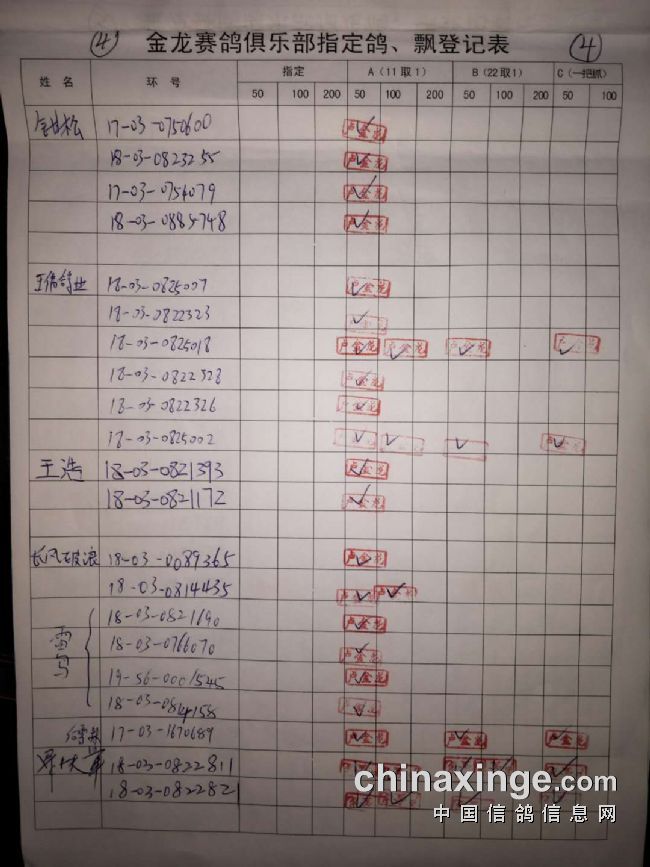 ④ 金龙赛鸽俱乐部指定鸽、飘登记表 ④
姓名 环号 指定 A(11取1) B(22取1) C(一把抓)
50 100 200 50 100 200 50 100 200 50 100
17-03-0750600 卢金龙
18-03-0823255 卢金龙
17-03-0754079 卢金龙
18-03-0885748 卢金龙
王伟鸽业 18-03-0825007 卢金龙
18-03-0822323
18-03-0825018 卢金龙 卢金龙 卢金龙 卢金龙
18-03-0822328 卢金龙
18-03-0822326 卢金龙
18-03-0825002 卢金龙
王浩 18-03-0821393 卢金龙
18-03-0821172 卢金龙
长风破浪 18-03-0089365 卢金龙
18-03-0814435 卢金龙 卢金龙
雷鸟 18-03-0821690 卢金龙
18-03-0766070 卢金龙
19-56-0001545 卢金龙
18-03-0814158
17-03-1670689 卢金龙 卢金龙 卢金龙
18-03-0822811
18-03-0822821
chinaxinge.com
中国信鸽信息网